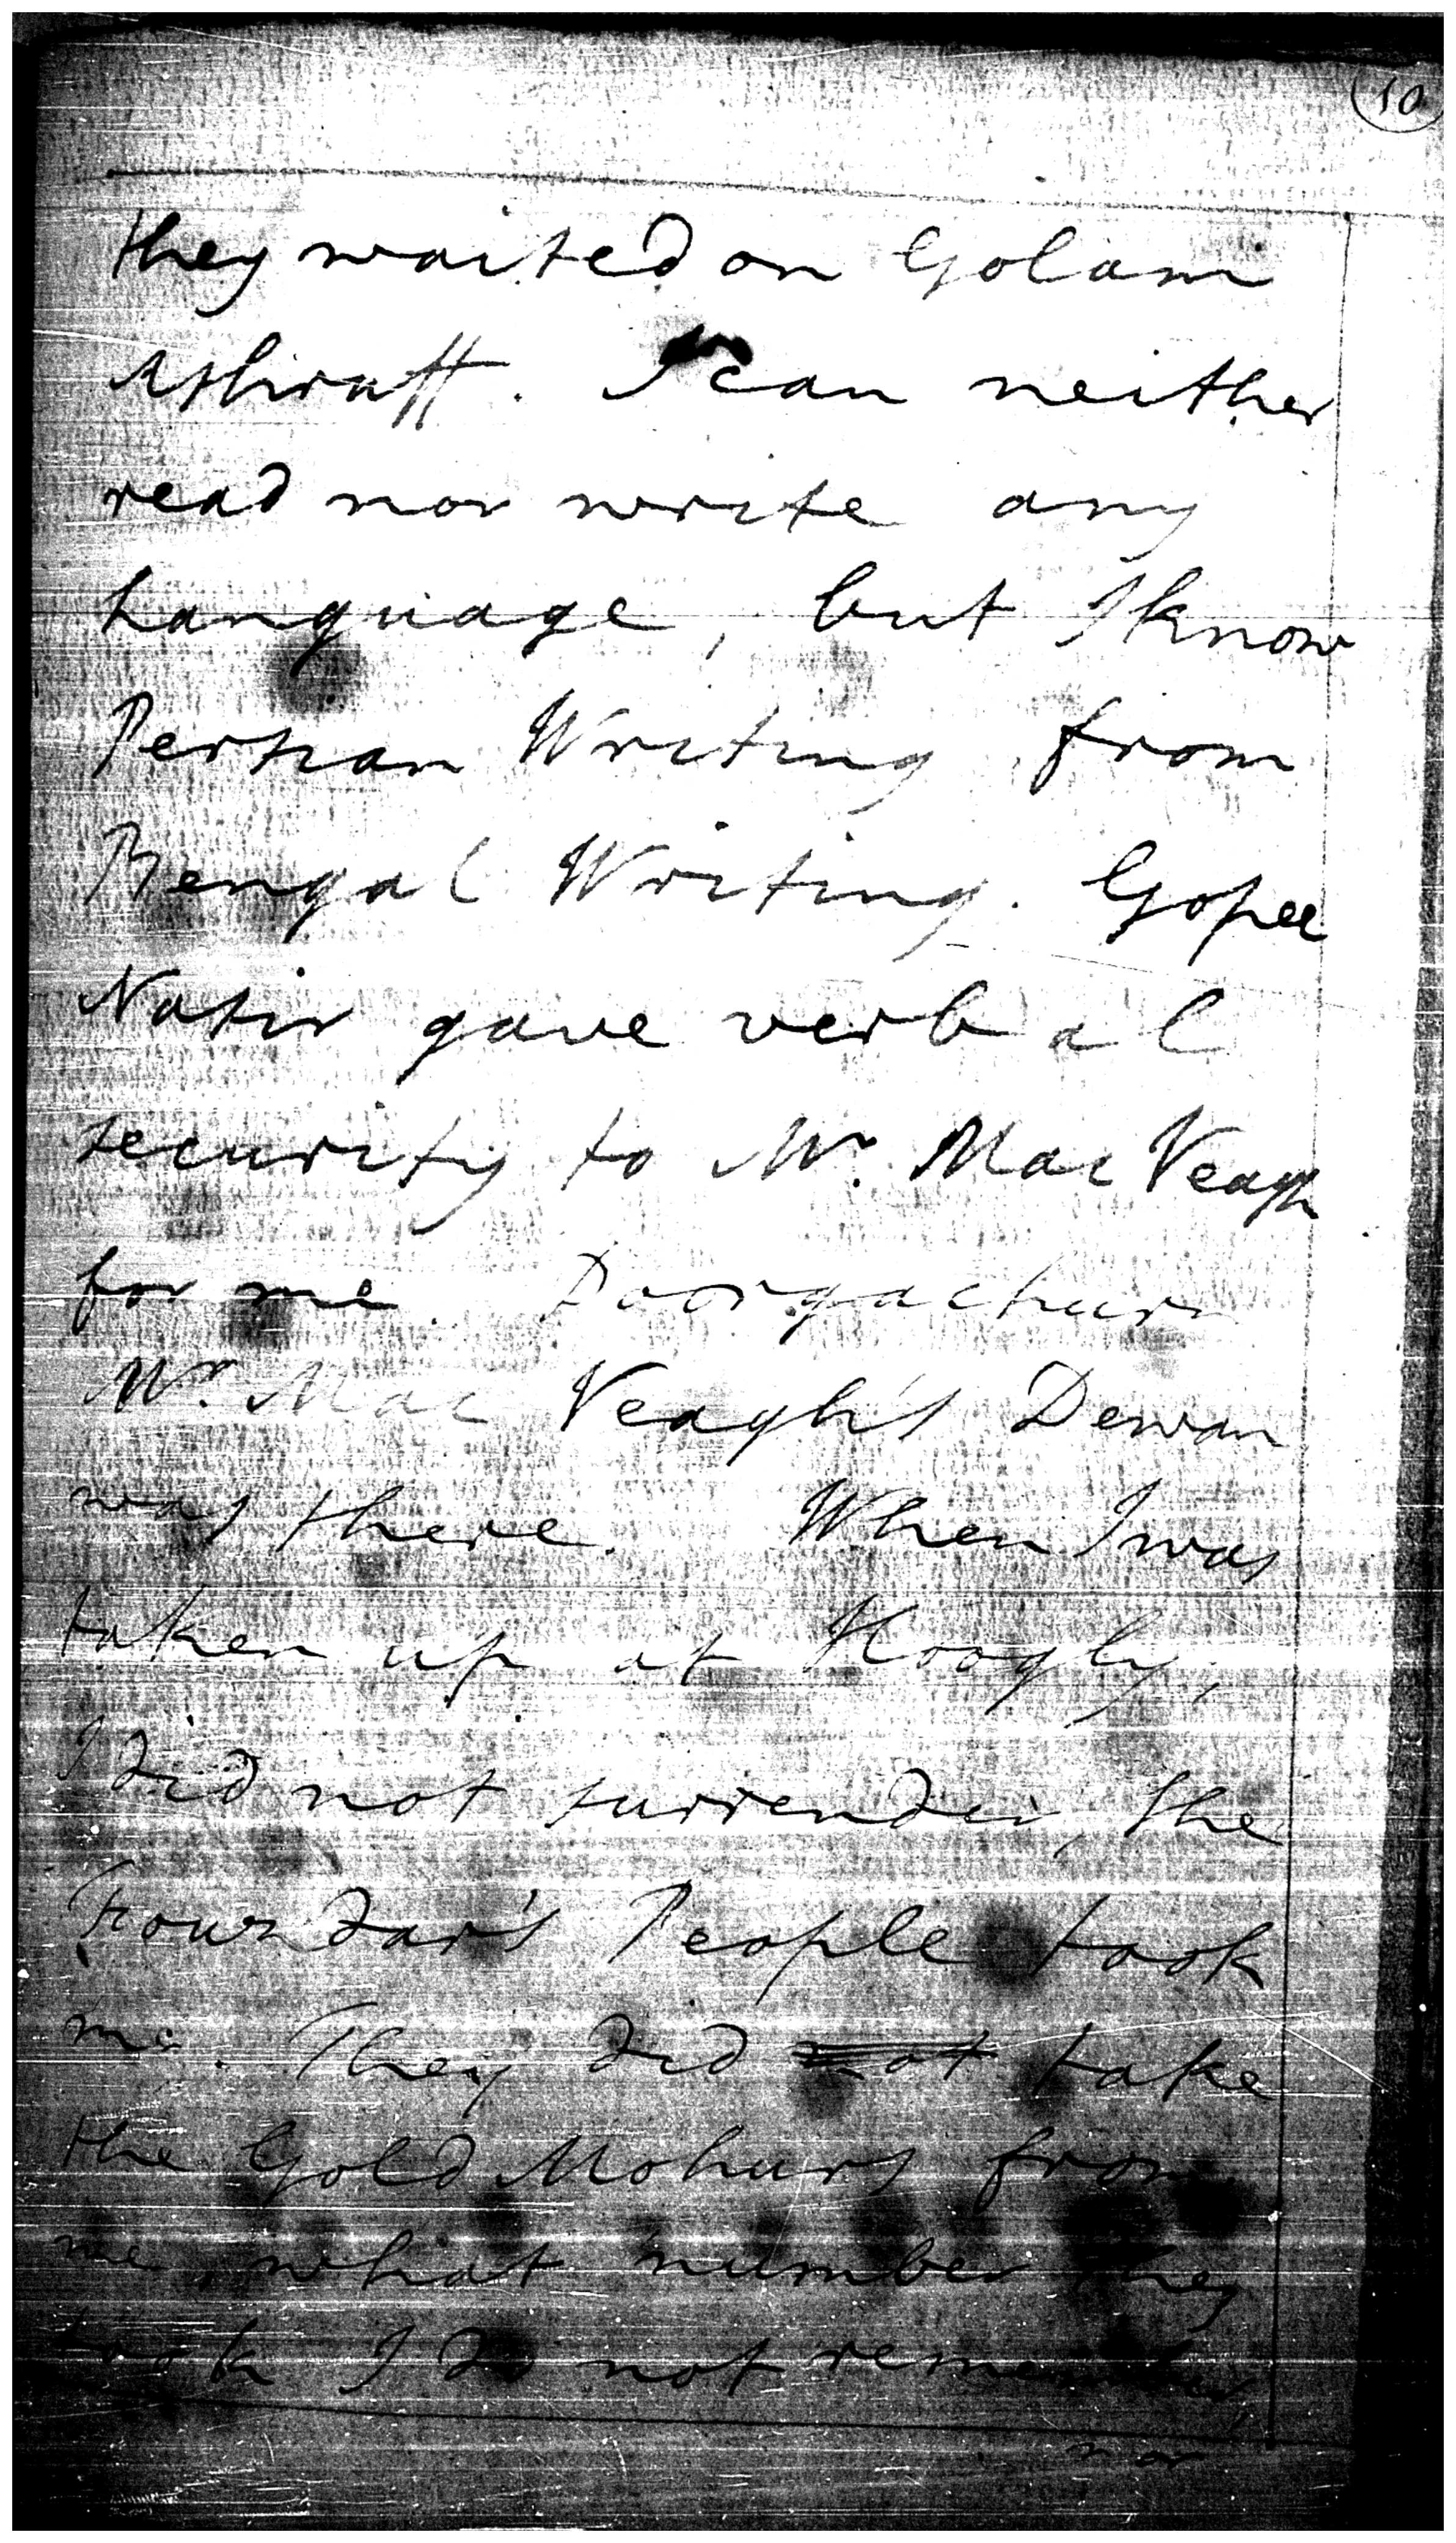 10
they waited on Golam
Ashruff. I can neither
read nor write any
Language, but I know
Persian Writing from
Bengal Writing. Gopee
Nasir gave verbal
security to Mr. Mac Veagh
for me. Doorgachurn
Mr. Mac Veagh's Dewan
was there. When I was
taken up at Hoogly,
I did not surrender, the
Fouzdar's People took
me. They did not take
the Gold Mohurs from
me, what number they
took I do not remember,
nor